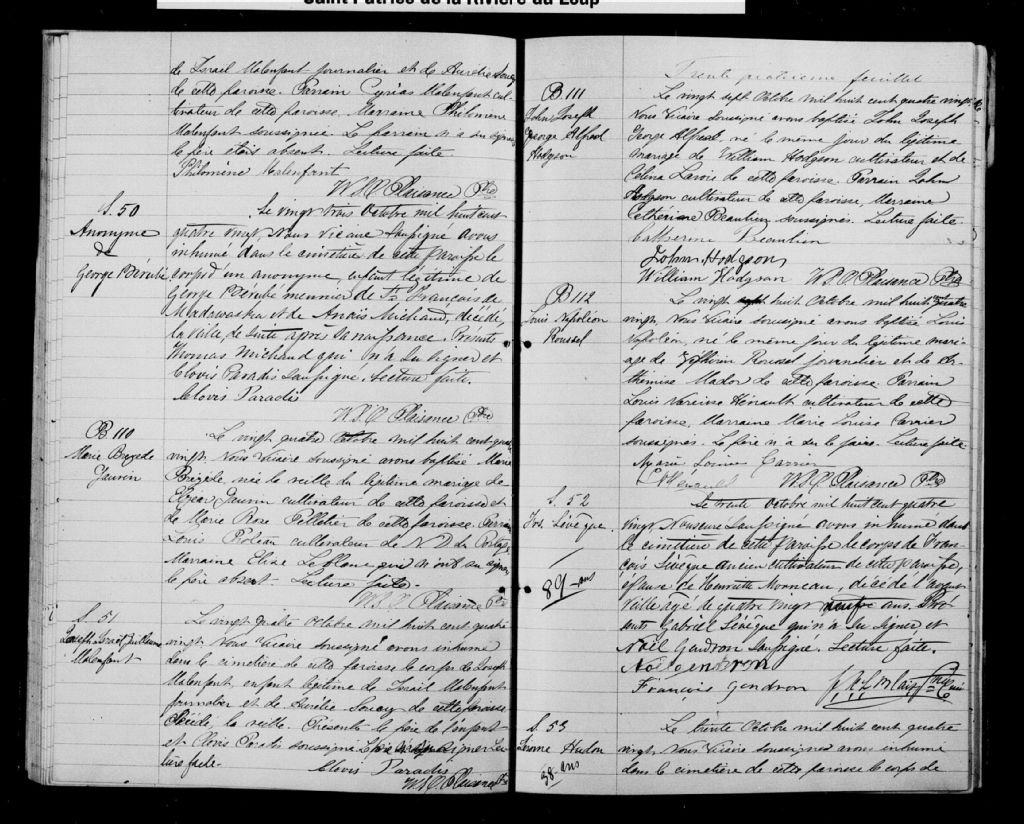 Saint Patrice de la Rivière du Loup
de Israel Malenfant journalier et de Aurélie Soucy
de cette paroisse. Parrain Cyrias Malenfant cul-
tivateur de cette paroisse, Marraine Philomene
Malenfant soussignée. Le parrain n'a su signer
le père étais absent. Lecture faite.
Philomène Malenfant
W. S. O. Plaisance Ptre
S. 50
Anonyme
de
George Bérubé
Le vingt trois Octobre mil huit cent
quatre vingt, Nous Vicaire soussigné avons
inhumé dans le cimetière de cette paroisse le
corps d'un anonyme enfant légitime de
George Bérubé meunier de St François de
Madawaska et de Anaïs Michaud, décédé
la veille de suite après sa naissance. Présents
Thomas Michaud qui n'a su signer et
Clovis Paradis soussigné. Lecture faite.
Clovis Paradis
W. S. O. Plaisance Ptre
B 110
Marie Brigede
Gauvin
Le vingt quatre Octobre mil huit cent quatre
vingt. Nous Vicaire soussigné avons baptisé Marie
Brigède, née la veille du légitime mariage de
Elzear Gauvin cultivateur de cette paroisse et
de Marie Rose Pelletier de cette paroisse. Parrain
Louis cultivateur de N. D. du Portage
Marraine Elise Leblanc qui n'ont su signer
le père absent. Lecture faite.
W. S. O. Plaisance Ptre
S. 51
Joseph Israël Guillaume
Malenfant
Le vingt quatre Octobre mil huit cent quatre
vingt. Nous Vicaire soussigné avons inhumé
dans le cimetière de cette paroisse le corps de Joseph
Malenfant, enfant légitime de Israël Malenfant
journalier et de Aurélie Soucy de cette paroisse
décédé la veille. Présents le père de l'enfant
et Clovis Paradis soussigné signer Lec-
ture faite.
Clovis Paradis
W. S. O. Plaisance Ptre
Trente quatrième feuillet
B 111
John Joseph
George Alfred
Hodgson
Le vingt sept Octobre mil huit cent quatre vingt
Nous Vicaire soussigné avons baptisé John Joseph
George Alfred, né le même jour du légitime
mariage de William Hodgson cultivateur et de
Célina Lavoie de cette paroisse. Parrain John
Hodgson cultivateur de cette paroisse, Marraine
Catherine Beaulieu soussignés. Lecture faite
Catherine Beaulieu
John Hodgson
William Hodgson W. S. O. Plaisance Ptre
B 112
Louis Napoléon
Roussel
Le vingt huit Octobre mil huit cent quatre
vingt. Nous Vicaire soussigné avons baptisé Louis
Napoléon, né le même jour du légitime mari-
age de Zéphirin Roussel journalier et de Ar-
themise Mador de cette paroisse. Parrain
Louis Hérault cultivateur de cette
paroisse, Marraine Marie Louise Carrier
soussignés. Le père n'a su le faire. Lecture faite
Louise Carrier
W. S. O. Plaisance Ptre
S. 52
Frs. Lévèque
89 ans
Le trente Octobre mil huit cent quatre
vingt Nous curé soussigné avons inhumé dans
le cimetière de cette paroisse le corps de Fran-
çois Lévèque ancien cultivateur de cette paroisse,
époux de Henriette Morneau, décédé l'avant
veille agé de quatre vingt neuf ans. Pré-
sents Gabriel Lévèque qui n'a su signer et
Noël Gendron soussigné. Lecture faite.
Noel Gendron
François Gendron
S. 53
Jérome Hudon
38 ans
Le trente Octobre mil huit cent quatre
vingt. Nous Vicaire soussigné avons inhumé
dans le cimetière de cette paroisse le corps de